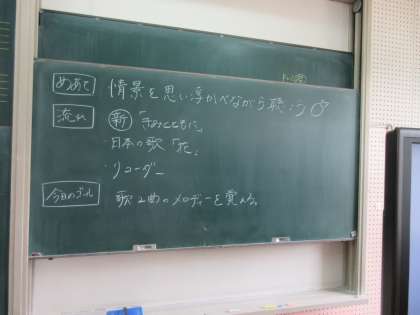 めあて 情景を思い浮かべながら聴こう
流れ 新「きみとともに」
・日本の歌「花」
・リコーダー
今日のゴール 歌2曲のメロディーを覚える。